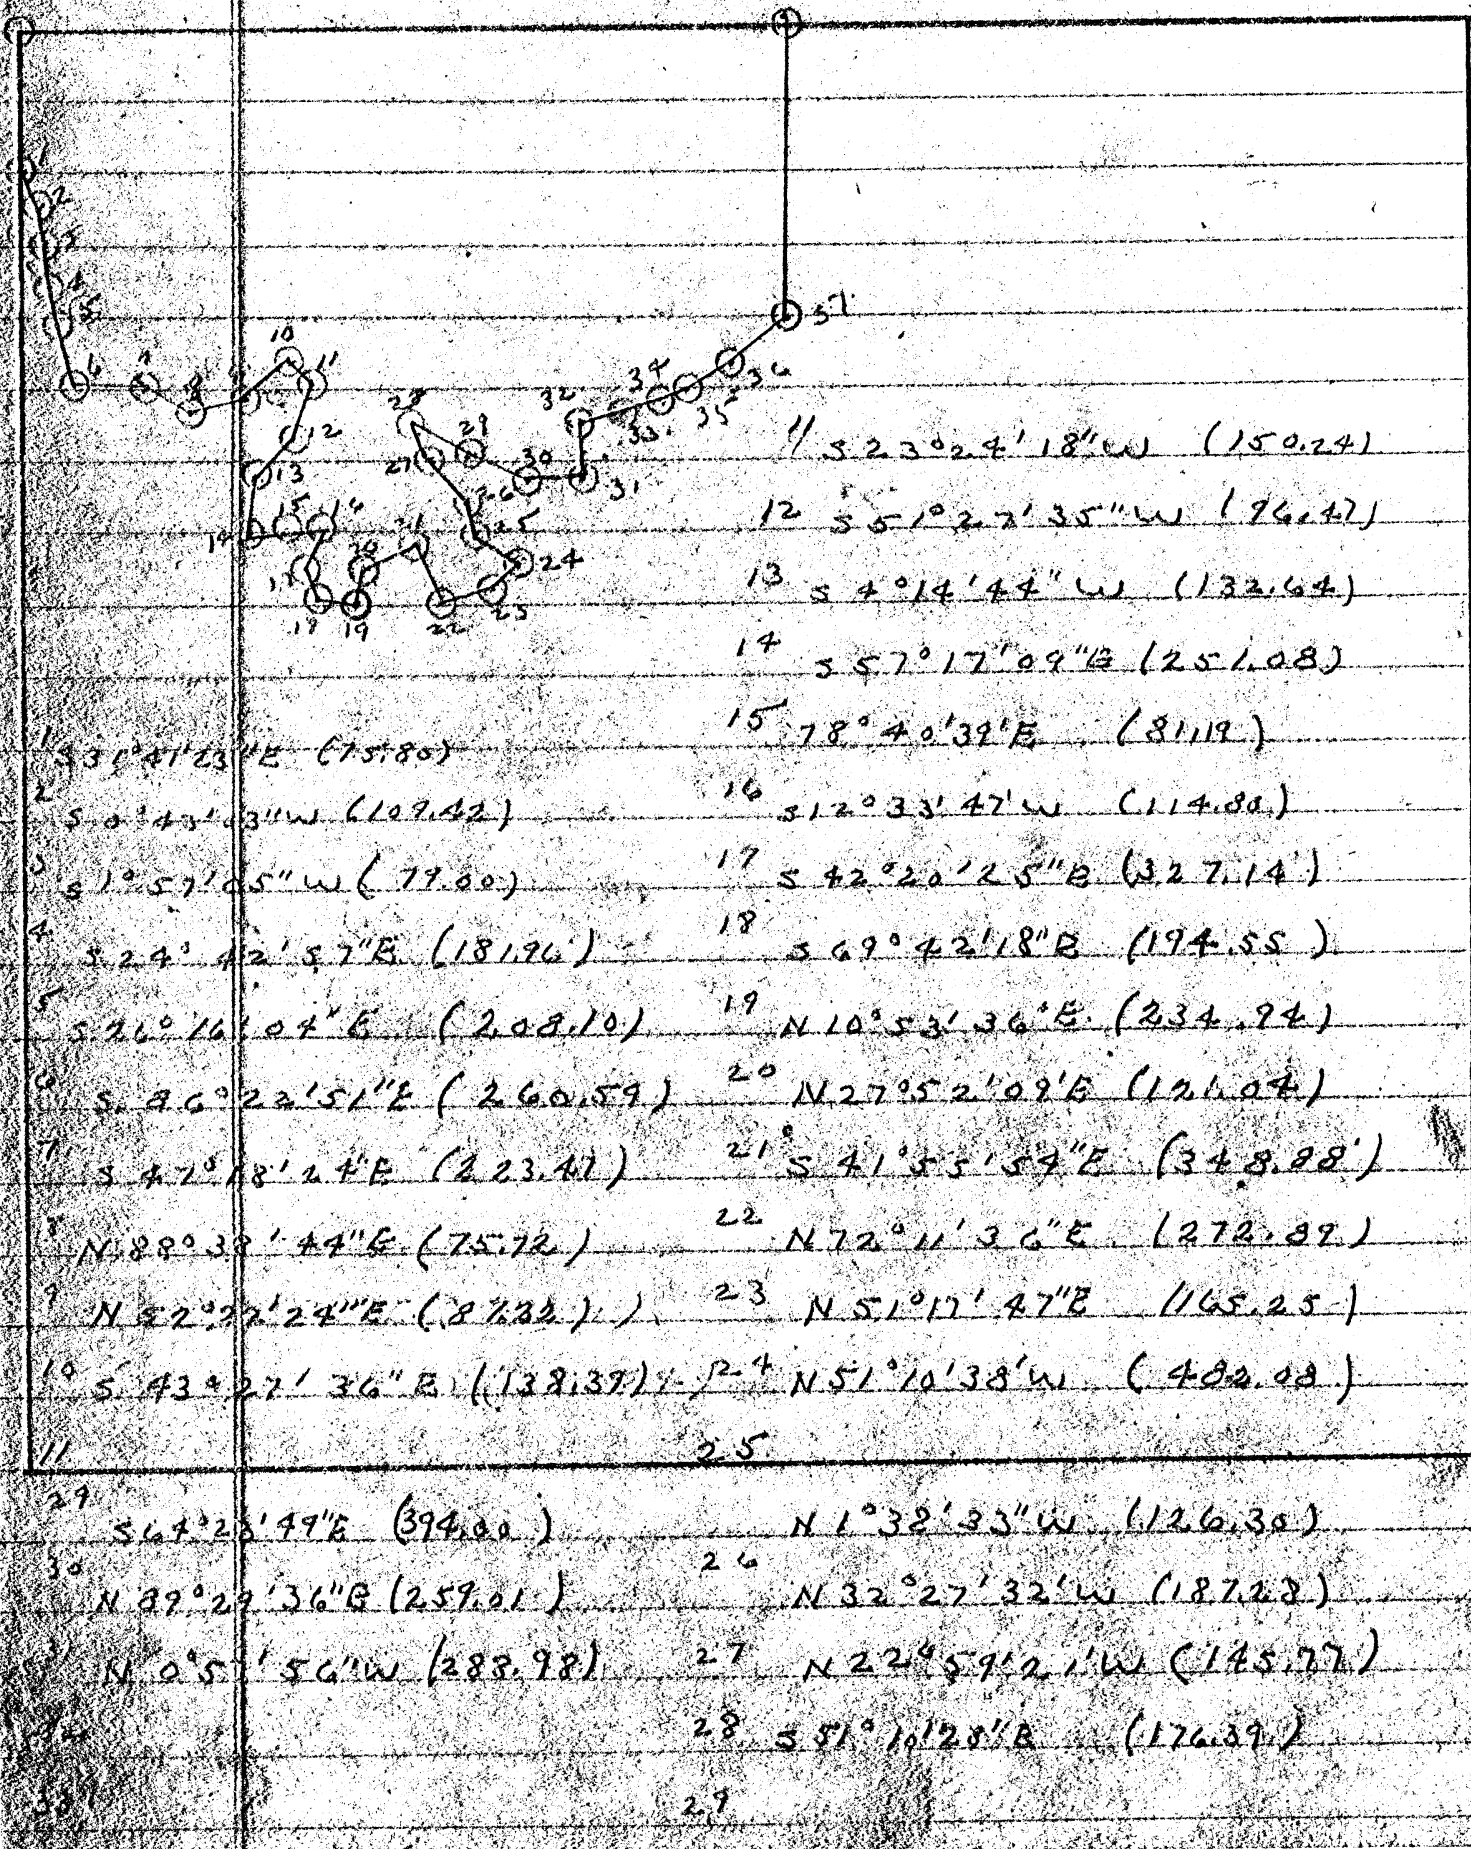 1
2
3
4
5
6
7
8
9
10
11
12
13
14
15
16
17
18
19
20
21
22
23
24
25
26
27
28
29
30
31
32
33
34
35
36
37
11 S 23° 24' 18" W (150.24)
12 S 51° 27' 35" W (96.47)
13 S 4° 14' 44" W (132.64)
14 S 57° 17' 09" E (251.08)
15 78° 40' 39' E (81.19)
16 S 12° 33' 47' W (114.80)
17 S 42° 20' 25" E (327.14')
18 S 69° 42' 18" E (194.55)
19 N 10° 53' 36" E (234.94)
20 N 27° 52' 09' E (121.04)
21 S 41° 55' 54" E (348.88')
22 N 72° 11' 36" E (272.89)
23 N 51° 17' 47" E (165.25)
24 N 51° 10' 38' W (482.08)
25
1 S 31° 41' 23" E (75.80)
2 S 0° 43' 03" W (109.42)
3 S 1° 57' 05" W (79.00)
4 S 24° 42' 57" E (181.96')
5 S 26° 16' 04" E (208.10)
6 S. 86° 22' 51" E (260.59)
7 S 47° 18' 24" E (223.47)
8 N 88° 38' 44" E (75.72)
9 N 52° 22' 24" E (87.32)
10 S 43° 27' 36" E (138.39)
11
29 S 64° 28' 49" E (394.00)
30 N 89° 29' 36" E (259.01)
31 N 0° 51' 56" W (283.98)
32
33
N 1° 38' 33" W (126.30)
26 N 32° 27' 32' W (187.28)
27 N 22° 59' 21' W (145.77)
28 S 51° 10' 28" E (176.39)
29